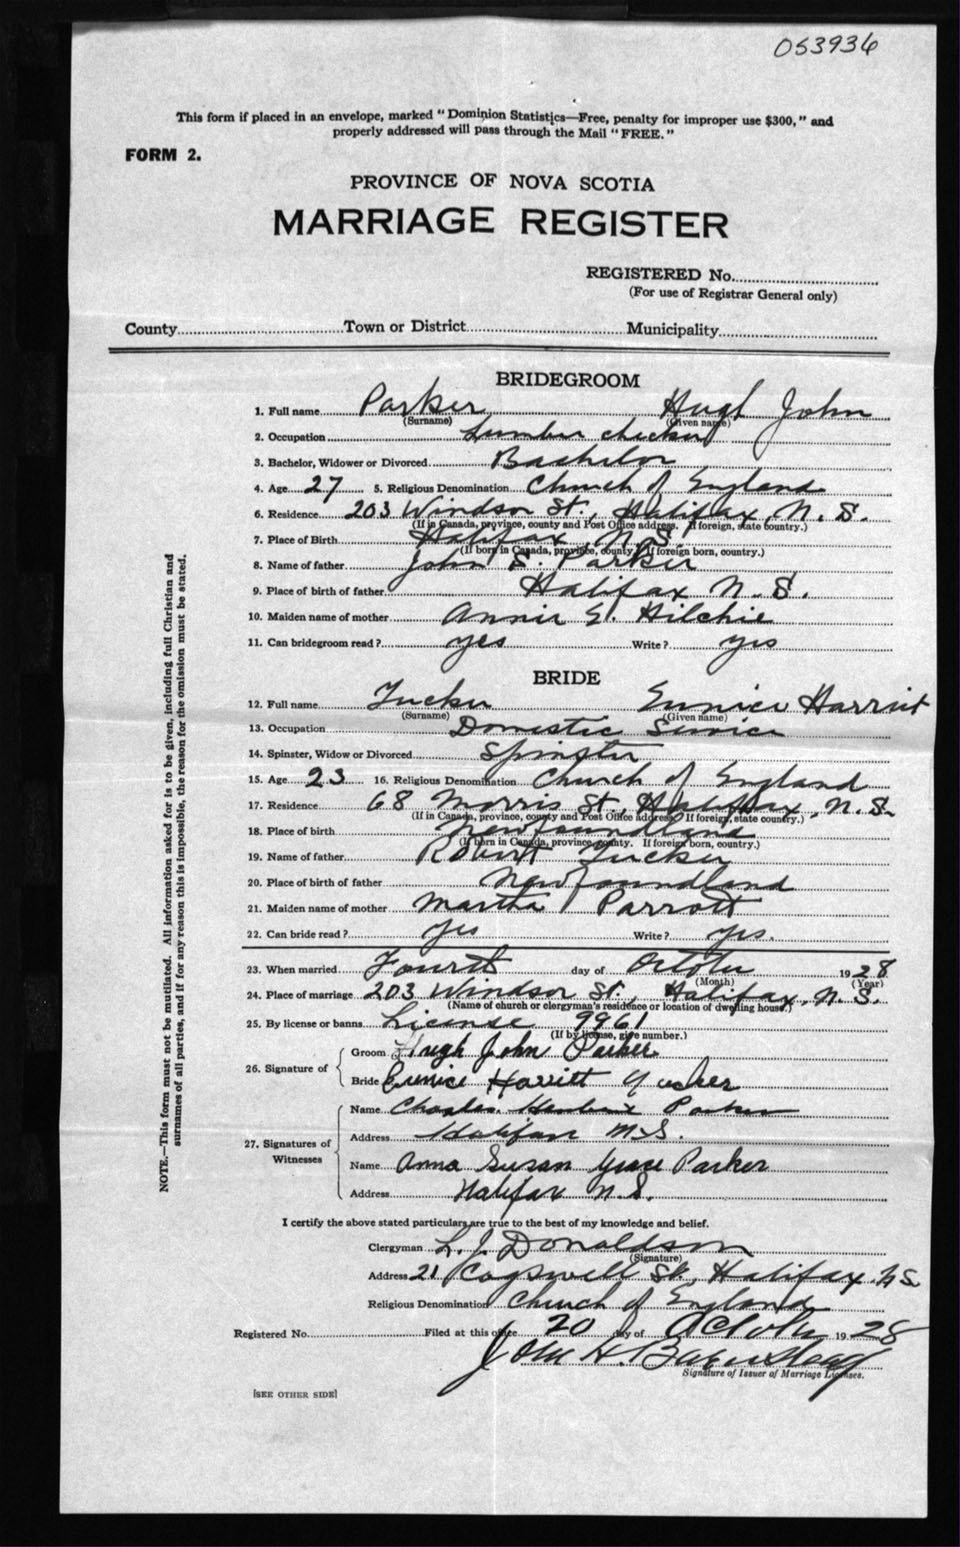 053936
This form if placed in an envelope, marked "Dominion Statistics—Free, penalty for improper use $300," and
properly addressed will pass through the Mail "FREE."
FORM 2.
PROVINCE OF NOVA SCOTIA
MARRIAGE REGISTER
REGISTERED No.
(For use of Registrar General only)
County Town or District Municipality
BRIDEGROOM
1. Full name Parker Hugh John
(Surname) (Given name)
2. Occupation Lumber checker
3. Bachelor, Widower or Divorced Bachelor
4. Age 27 5. Religious Denomination Church of England
6. Residence 203 Windsor St., Halifax, N. S.
(If in Canada, province, county and Post Office address. If foreign, state country.)
7. Place of Birth Halifax, N. S.
(If born in Canada, province, county. If foreign born, country.)
8. Name of father John S. Parker
9. Place of birth of father Halifax N. S.
10. Maiden name of mother Annie E. Hilchie
11. Can bridegroom read? yes Write? yes
BRIDE
12. Full name Tucker Eunice Harriet
(Surname) (Given name)
13. Occupation Domestic Service
14. Spinster, Widow or Divorced Spinster
15. Age 23 16. Religious Denomination Church of England
17. Residence 68 Morris St., Halifax, N. S.
(If in Canada, province, county and Post Office address. If foreign, state country.)
18. Place of birth Newfoundland
(If born in Canada, province, county. If foreign born, country.)
19. Name of father Robert Tucker
20. Place of birth of father Newfoundland
21. Maiden name of mother Martha Parrott
22. Can bride read? yes Write? yes.
23. When married Fourth day of October 1928
(Month) (Year)
24. Place of marriage 203 Windsor St., Halifax, N. S.
(Name of church or clergyman's residence or location of dwelling house.)
25. By license or banns License 9961
(If by license, give number.)
26. Signature of Groom Hugh John Parker
Bride Eunice Harriett Tucker
27. Signatures of Witnesses
Name Charles Parker
Address Halifax N.S.
Name Anna Susan Grace Parker
Address Halifax N. S.
I certify the above stated particulars are true to the best of my knowledge and belief.
Clergyman L. J. Donaldson
(Signature)
Address 21 Cogswell St., Halifax. N S
Religious Denomination Church of England
Registered No. Filed at this office 20 day of October 1928
John H.
Signature of Issuer of Marriage Licenses.
[SEE OTHER SIDE]
NOTE.—This form must not be mutilated. All information asked for is to be given, including full Christian and
surnames of all parties, and if for any reason this is impossible, the reason for the omission must be stated.